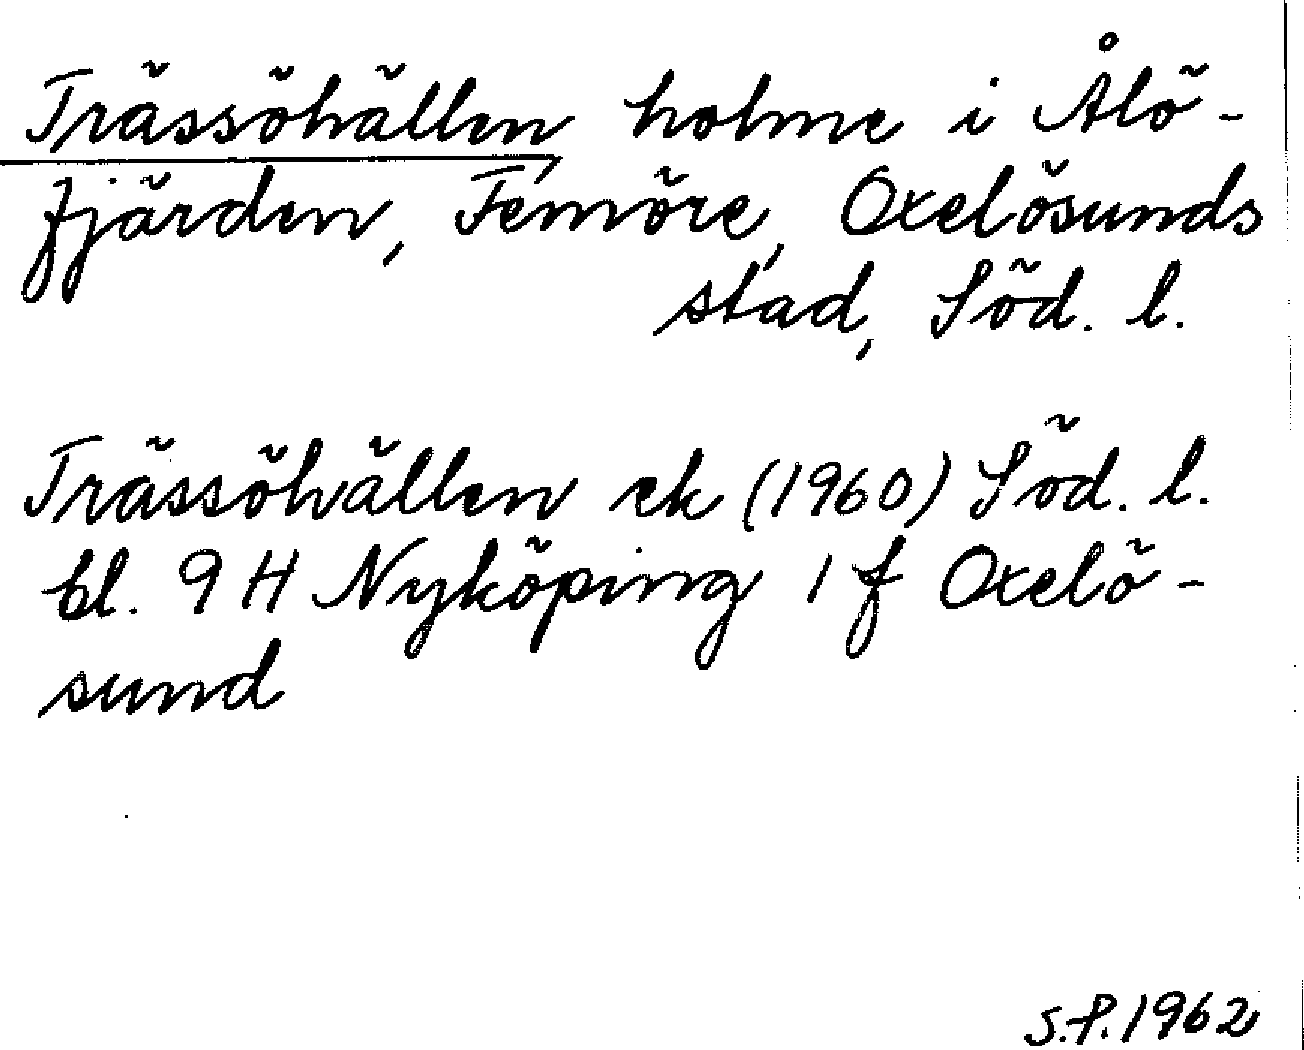 Trässöhällen holme i Ålö-
fjärden, Femöre, Oxelösunds
stad, Söd. l.
Trässöhällen ek (1960) Söd. l.
bl. 9 H Nyköping 1 f Oxelö-
sund
S.P. 1962